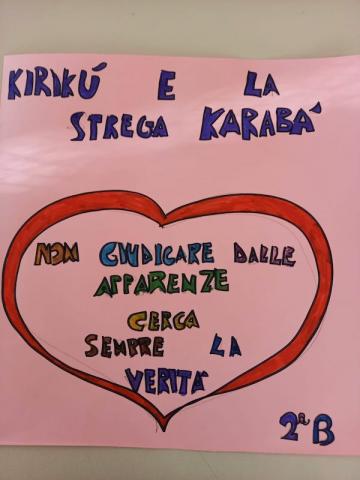 KIRIKÚ E LA
STREGA KARABÁ
NON GIUDICARE DALLE
APPARENZE
CERCA
SEMPRE LA
VERITÁ
2ª B